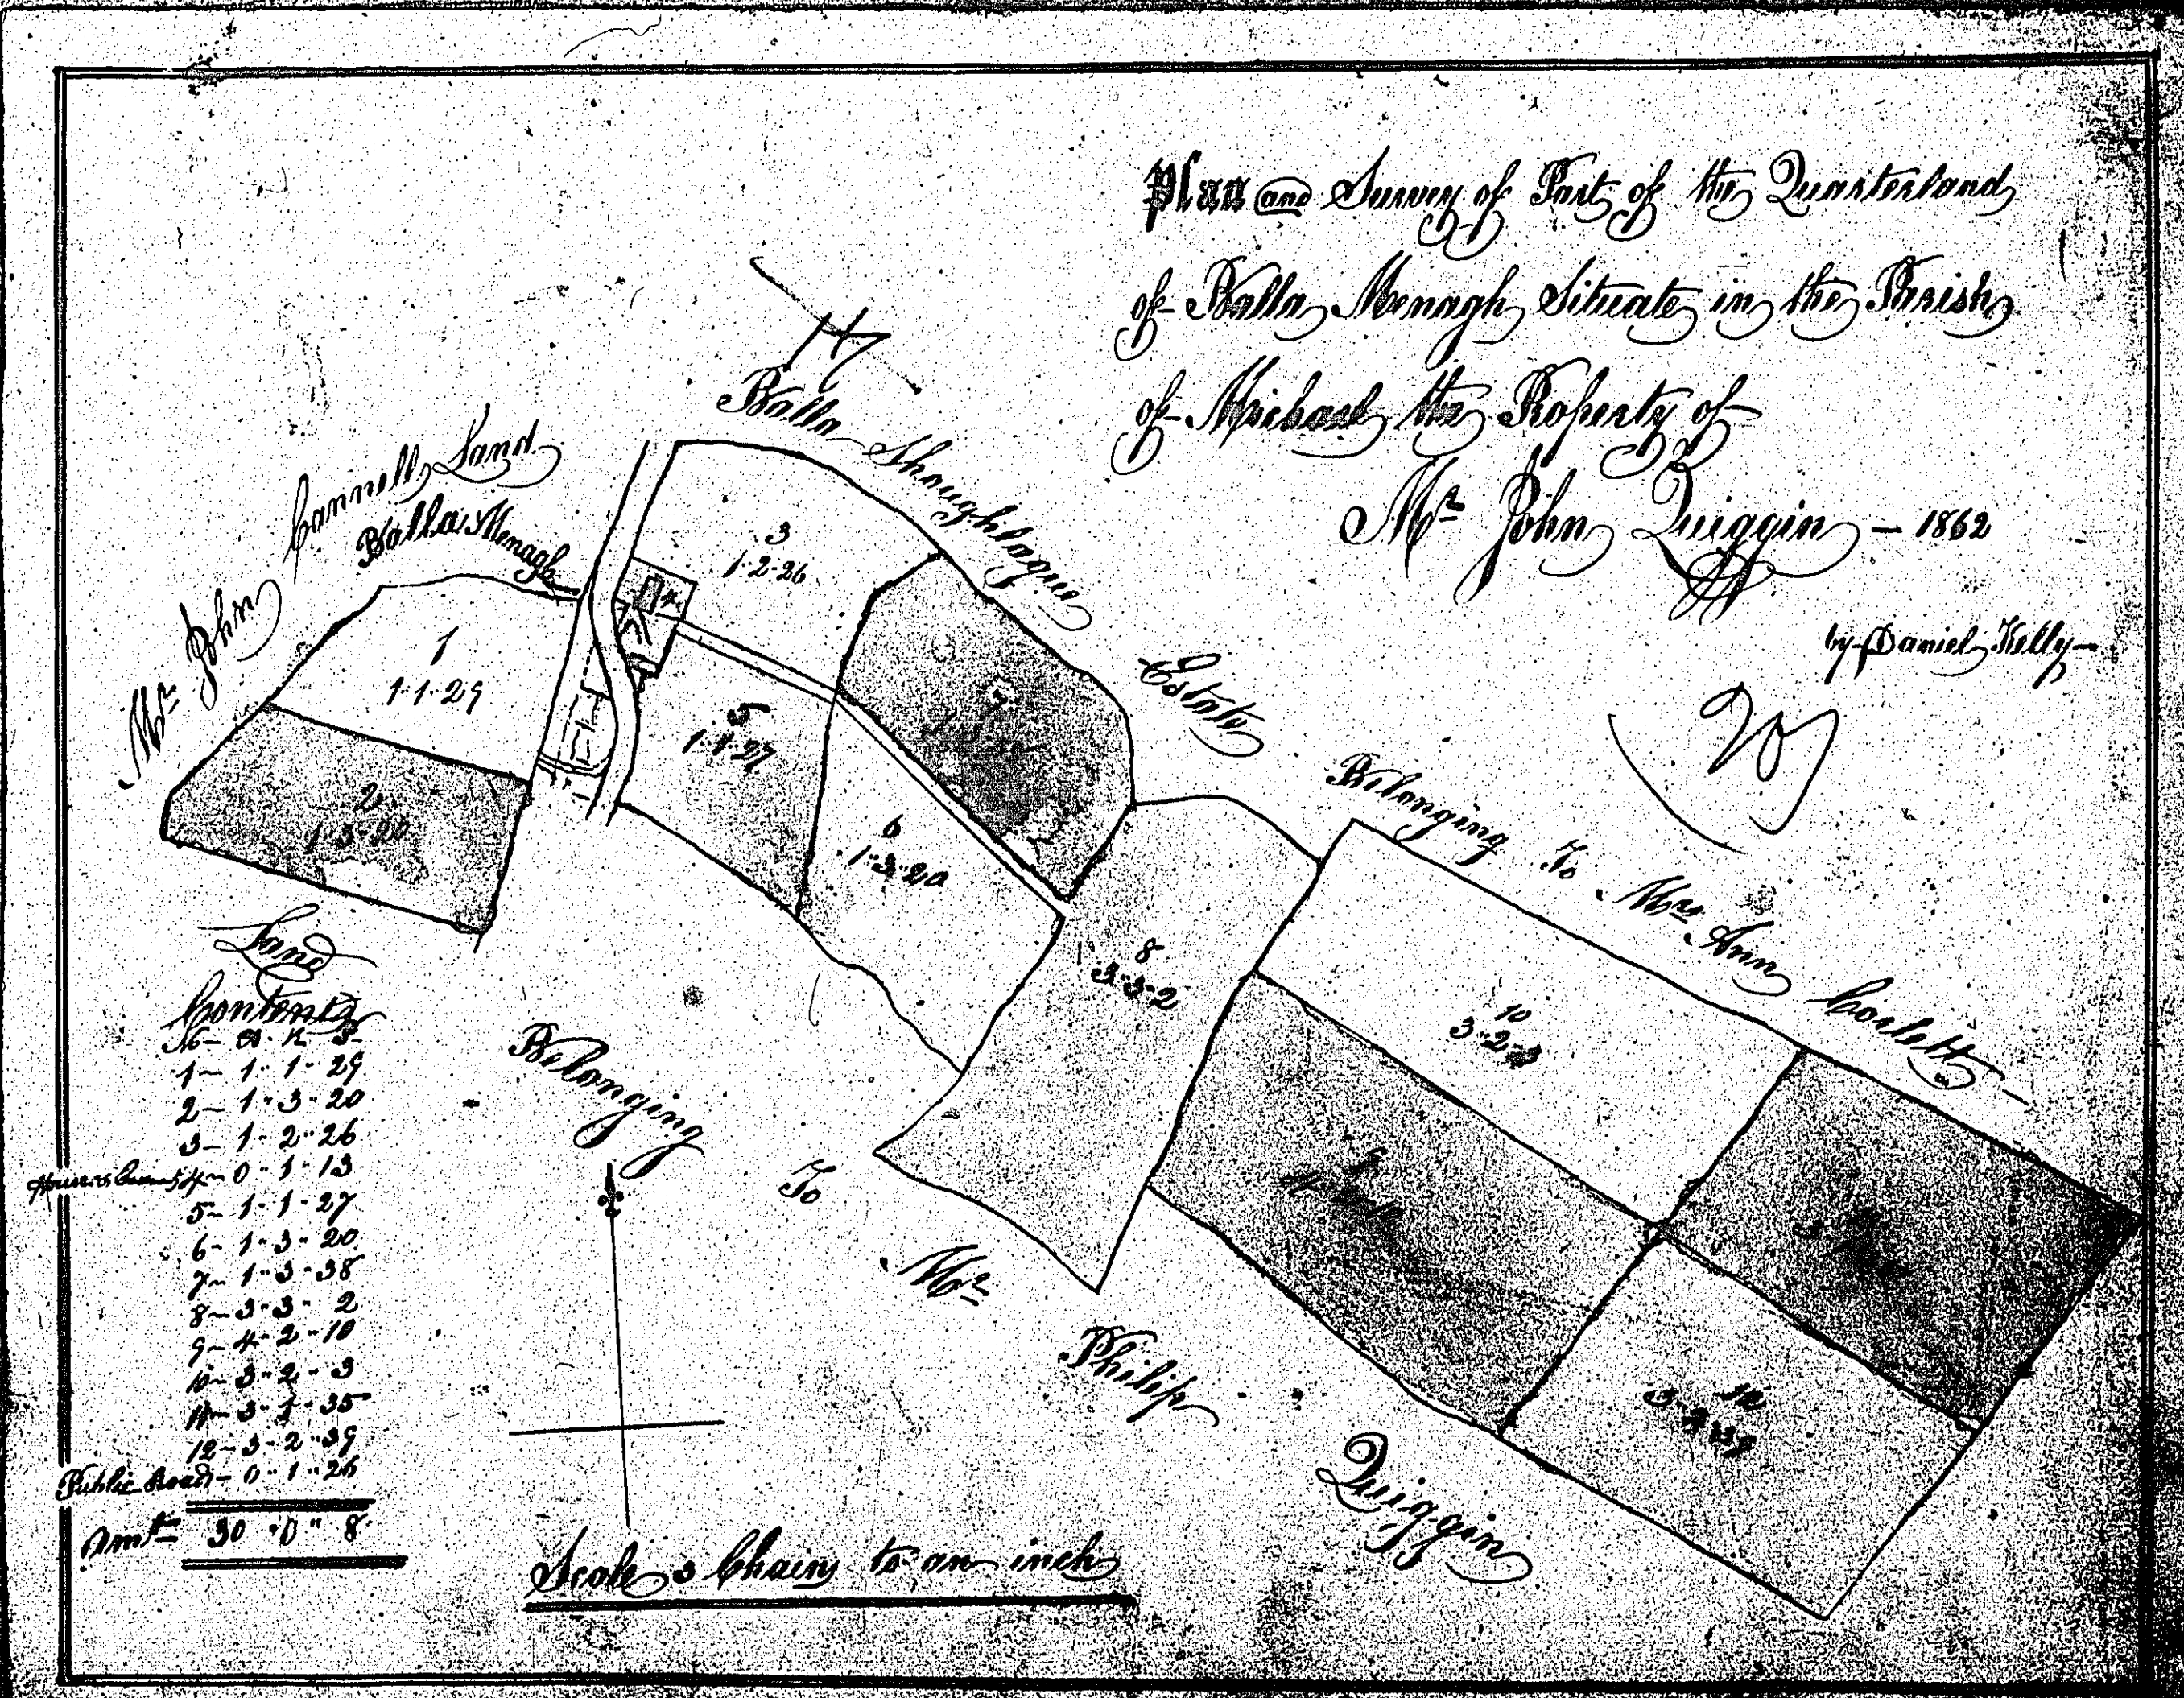 Plan and Survey of Part of the Quarterland
of Balla Menagh Situate in the Parish
of Michael the Property of
Mr John Quiggin – 1862
by Daniel Kelly
20
Mr John Cannell Land
Balla Menagh
Balla Shoughlague Estate Belonging To Mrs Ann Corlett
1
1·1·29
2
1·3·20
3
1·2·26
4
5
1·1·27
6
1·3·20
7
8
3·3·2
9
10
3·2·3
12
3·2·39
Land Belonging To Mr Philip Quiggin
Contents
No A. R. P.
1 – 1 · 1 · 29
2 – 1 · 3 · 20
3 – 1 · 2 · 26
4 – 0 · 1 · 13
5 – 1 · 1 · 27
6 – 1 · 3 · 20
7 – 1 · 3 · 38
8 – 3 · 3 · 2
9 – 4 · 2 · 10
10 – 3 · 2 · 3
11 – 3 · 1 · 35
12 – 3 · 2 · 39
Public Road – 0 · 1 · 26
Amt = 30 · 0 · 8
Scale 3 Chains to an inch